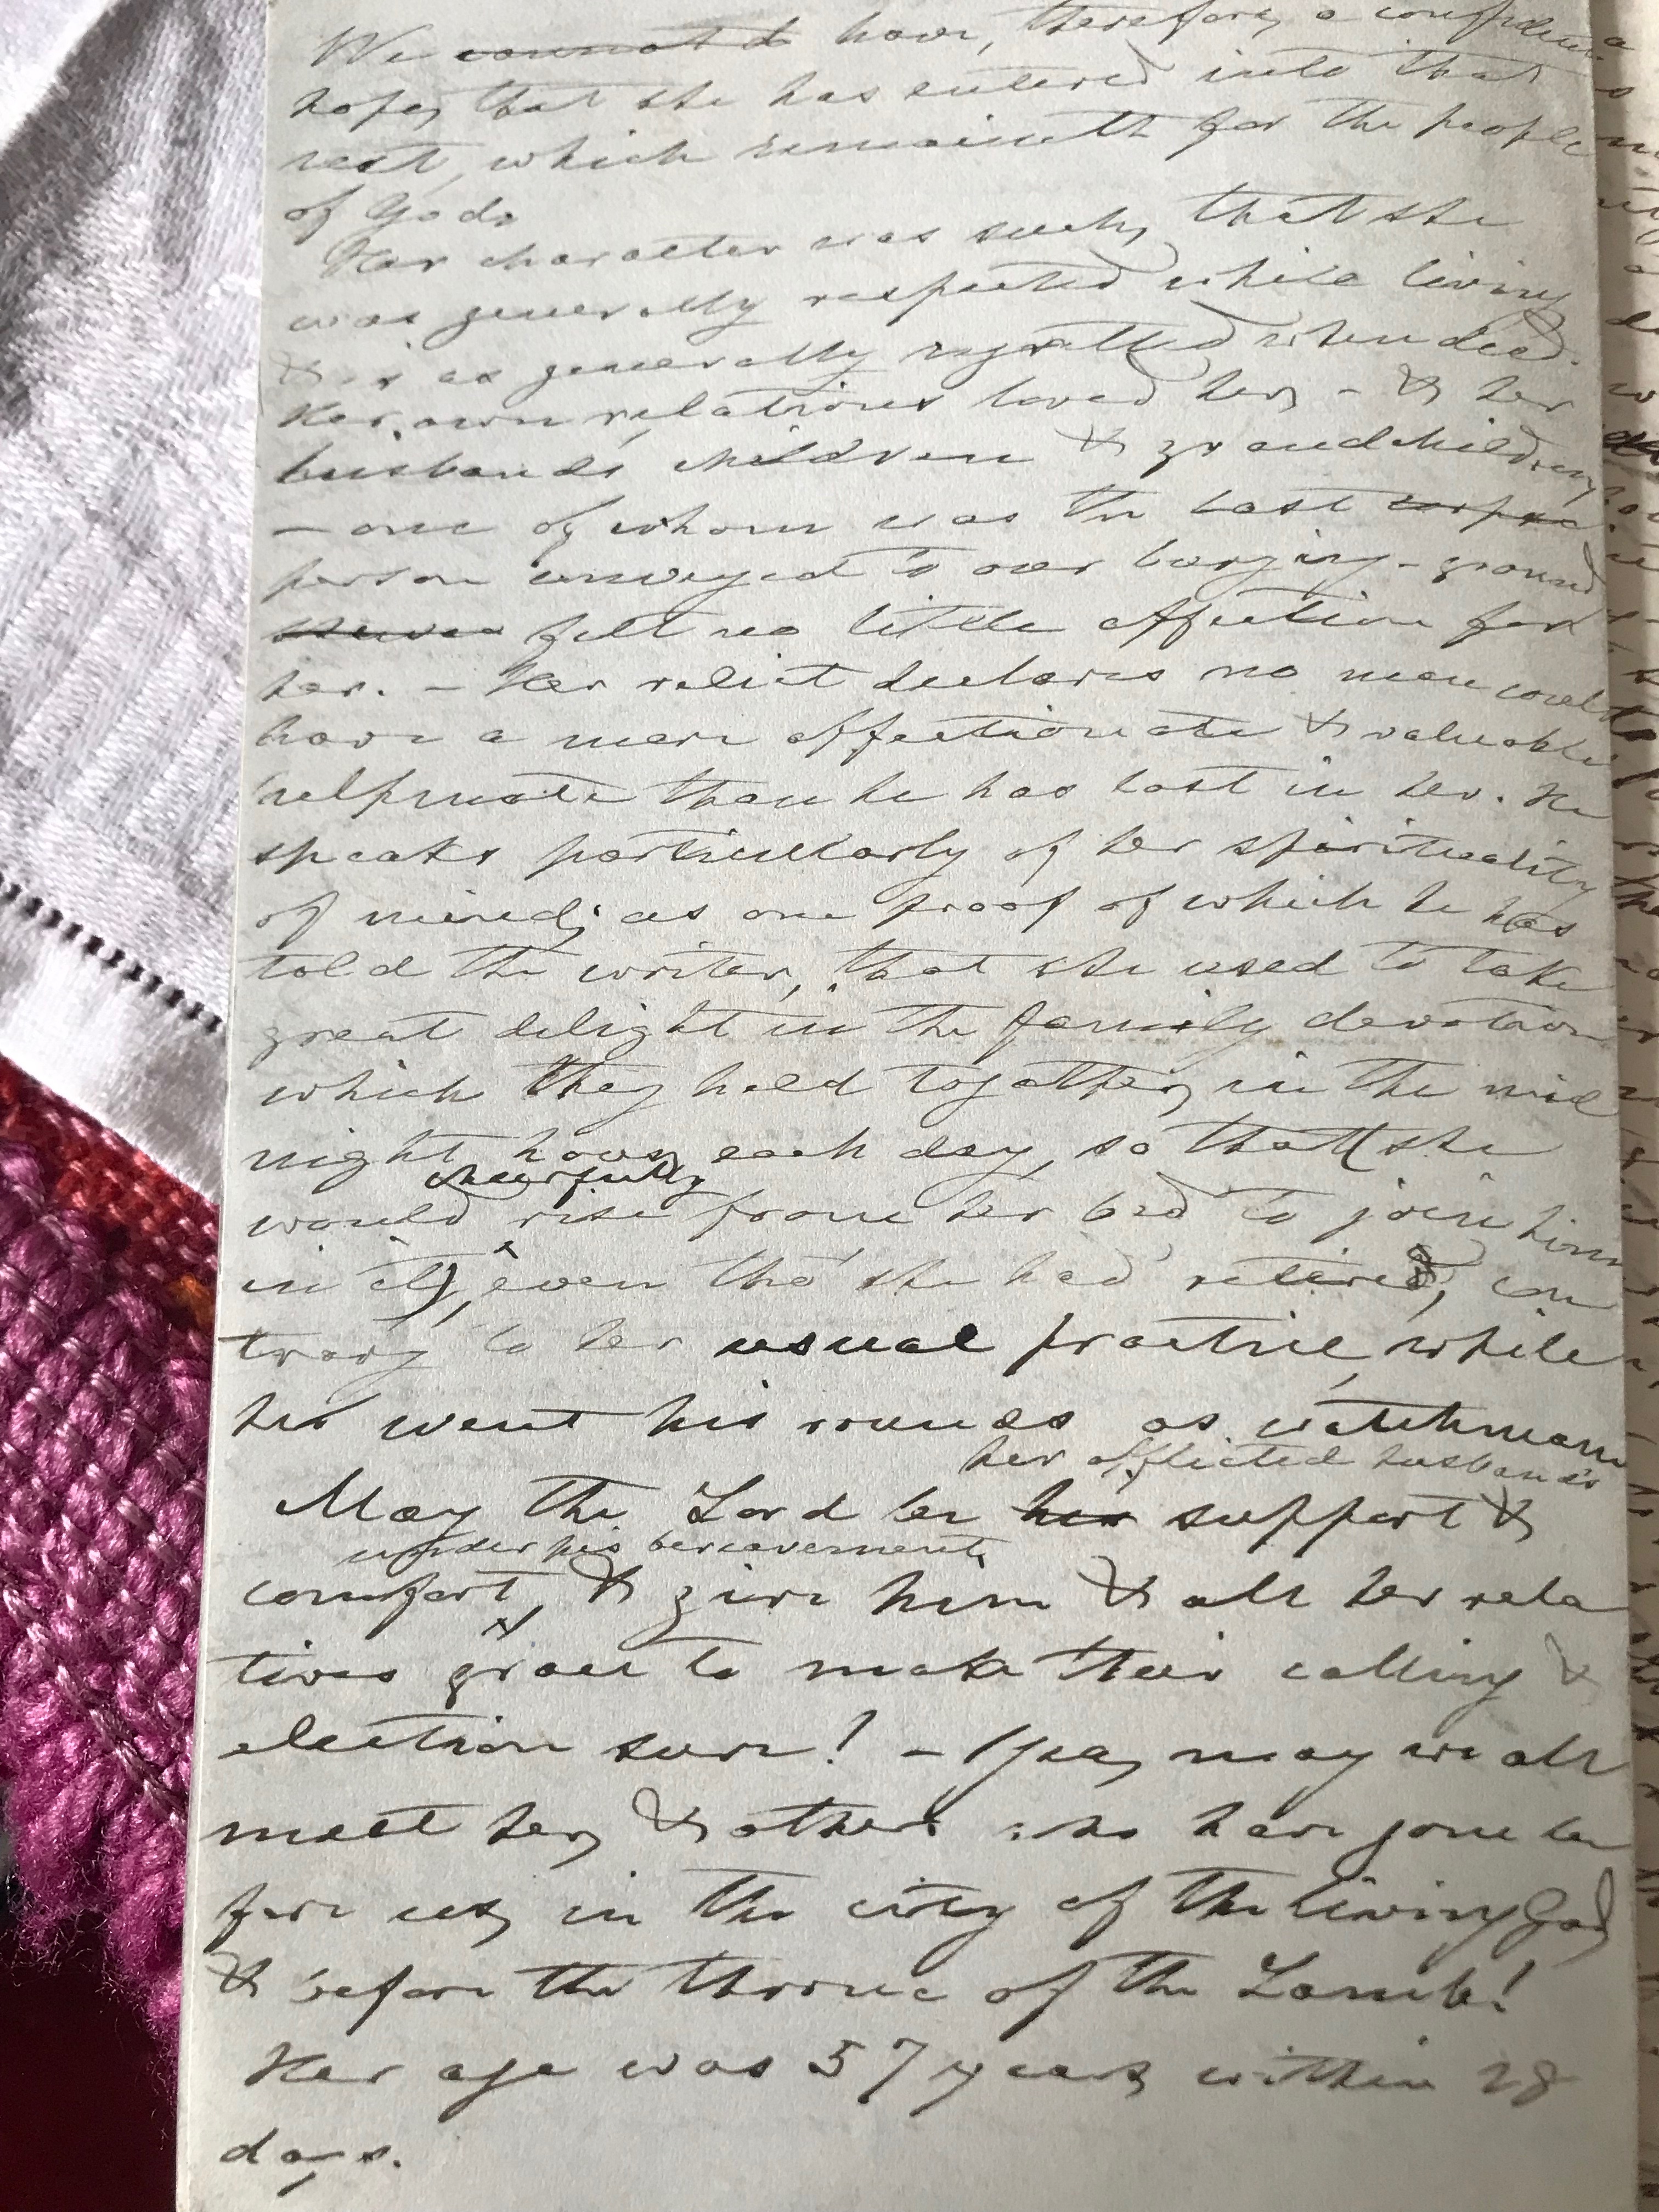 We cannot d have, therefore, a confident
hope, that she has entered into that
rest, which remaineth for the people
of God.
Her character was such, that she
was generally respected while living
& is as generally regretted when dead.
Her own relations loved her, - & her
husbands children & grandchildren,
- one of whom was the last corpse
person conveyed to our burying-ground
felt no little affection for
her. - Her relict declares no man could
have a more affectionate & valuable
helpmate than he has lost in her. He
speaks particularly of her spirituality
of mind; as one proof of which he has
told the writer, that she used to take
great delight in the family devotion
which they held together, in the mid
night hour, each day, so that (she
cheerfully
would rise from her bed to join him
in it), even tho' she had retired, con
trary to her usual practice, while
he went his rounds as watchman
her afflicted husband's
May the Lord be his support &
under his bereavement,
comfort, & give him & all her rela
tives grace to make their calling &
election sure! - Yea, may we all
meet her, & others who have gone be
fore us, in the city of the living God,
& before the throne of the Lamb!
Her age was 57 years, within 28
days.